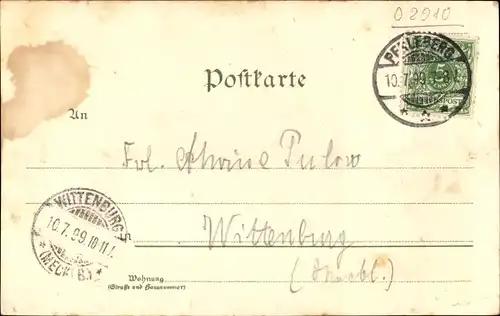 02910
Postkarte
PERLEBERG
10.7.99.
5
An
Frl. Alwine Pulow
Wittenburg
(Meckl.)
WITTENBURG
10.7.99.10-11
(MECKLB.)
Wohnung
(Straße und Hausnummer)